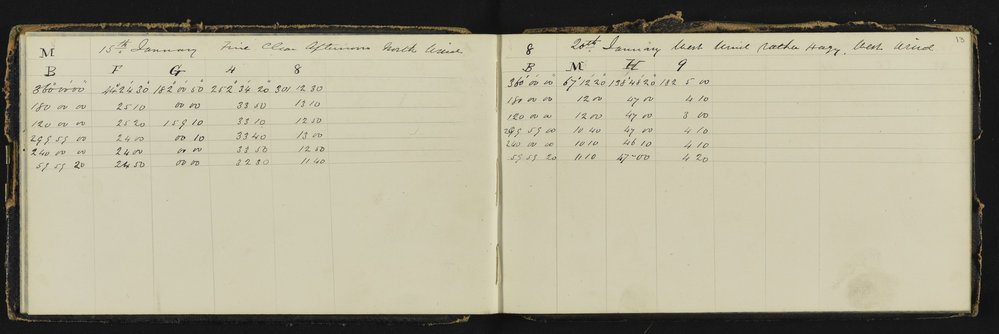 M 15th January Fine Clear Afternoon North Wind
B F G 4 8
360° 00' 00" 46° 24 30 182° 00' 50 252° 34 20 301 12 30
180 00 00 25 10 00 00 33 50 13 10
120 00 00 25 20 159 10 33 10 12 50
299 59 00 24 00 00 10 33 40 13 00
240 00 00 24 00 00 00 33 50 12 50
59 59 20 24 50 00 00 32 30 11 40
13
8 20th January West Wind rather Hazy, West Wind
B M H 9
360° 00' 00 67° 12 20 198° 48 20 182 5 00
180 00 00 12 00 47 00 4 10
120 00 00 12 00 47 00 3 00
299 59 00 10 40 47 00 4 10
240 00 00 10 10 46 10 4 10
59 59 20 11 10 47-00 4 20